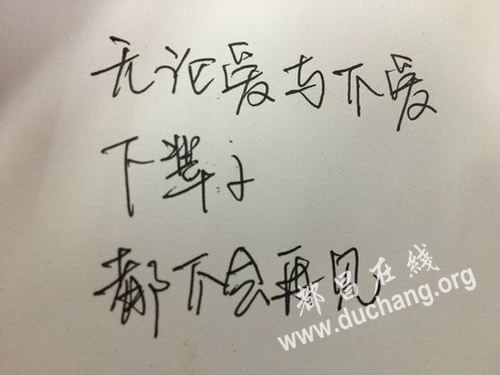 无论爱与不爱
下辈子
都不会再见
都昌在线
www.duchang.org